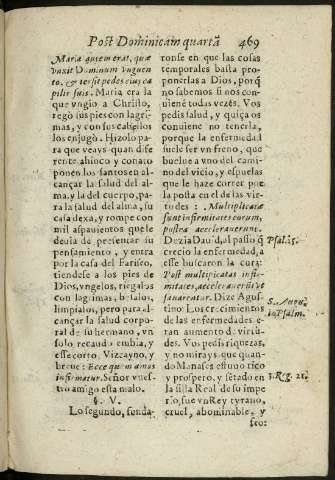 Post Dominicam quartã 469
Maria autem erat, quæ
vnxit Dominum vnguen-
to, & tersit pedes eius ca-
pilis suis. Maria era la
que vngio a Christo,
regò sus pies con lagri-
mas, y con sus cabellos
los enjugò. Hizolo pa-
ra que veays quan dife
rente ahinco y conato
ponen los santos en al-
cançar la salud del al-
ma, y la del cuerpo, pa-
ra la salud del alma, su
casa dexa, y rompe con
mil aspauientos que le
deuia de presentar su
pensamiento, y entra
por la casa del Fariseo,
tiendese a los pies de
Dios, vngelos, riegalos
con lagrimas, besalos,
limpialos, pero para al-
cançar la salud corpo-
ral de su hermano, vn
solo recaudo embia, y
esse corto, Vizcayno, y
breue: Ecce quem amas
infirmatur. Señor vues-
tro amigo esta malo.
§. V.
Lo segundo, funda-
ronse en que las cosas
temporales basta pro-
ponerlas a Dios, porq̃
no sabemos si nos con-
uiene todas vezes. Vos
pedis salud, y quiça os
conuiene no tenerla,
porque la enfermedad
suele ser vn freno, que
buelue a vno del cami-
no del vicio, y espuelas
que le haze correr por
la posta en el de las vir-
tudes: Multiplicatæ
sunt infirmitates eorum,
postea accelerauerunt.
Dezia Dauid, al passo q̃
crecio la enfermedad, a
esse buscaren la cura:
Post multiplicatas infir-
mitates, accelerauerũt
Dize Agustino
Los crecimientos
de las enfermedades e-
ran aumento de virtu-
des. Vos pedis riquezas,
y no mirays que quan-
do Manases estuuo rico
y prospero, y sẽtado en
la silla Real de su impe
rio, fue vn Rey tyrano,
cruel, abominable, y
Psal. 15.
S. Augu.
in Psalm.
3. Reg. 21.